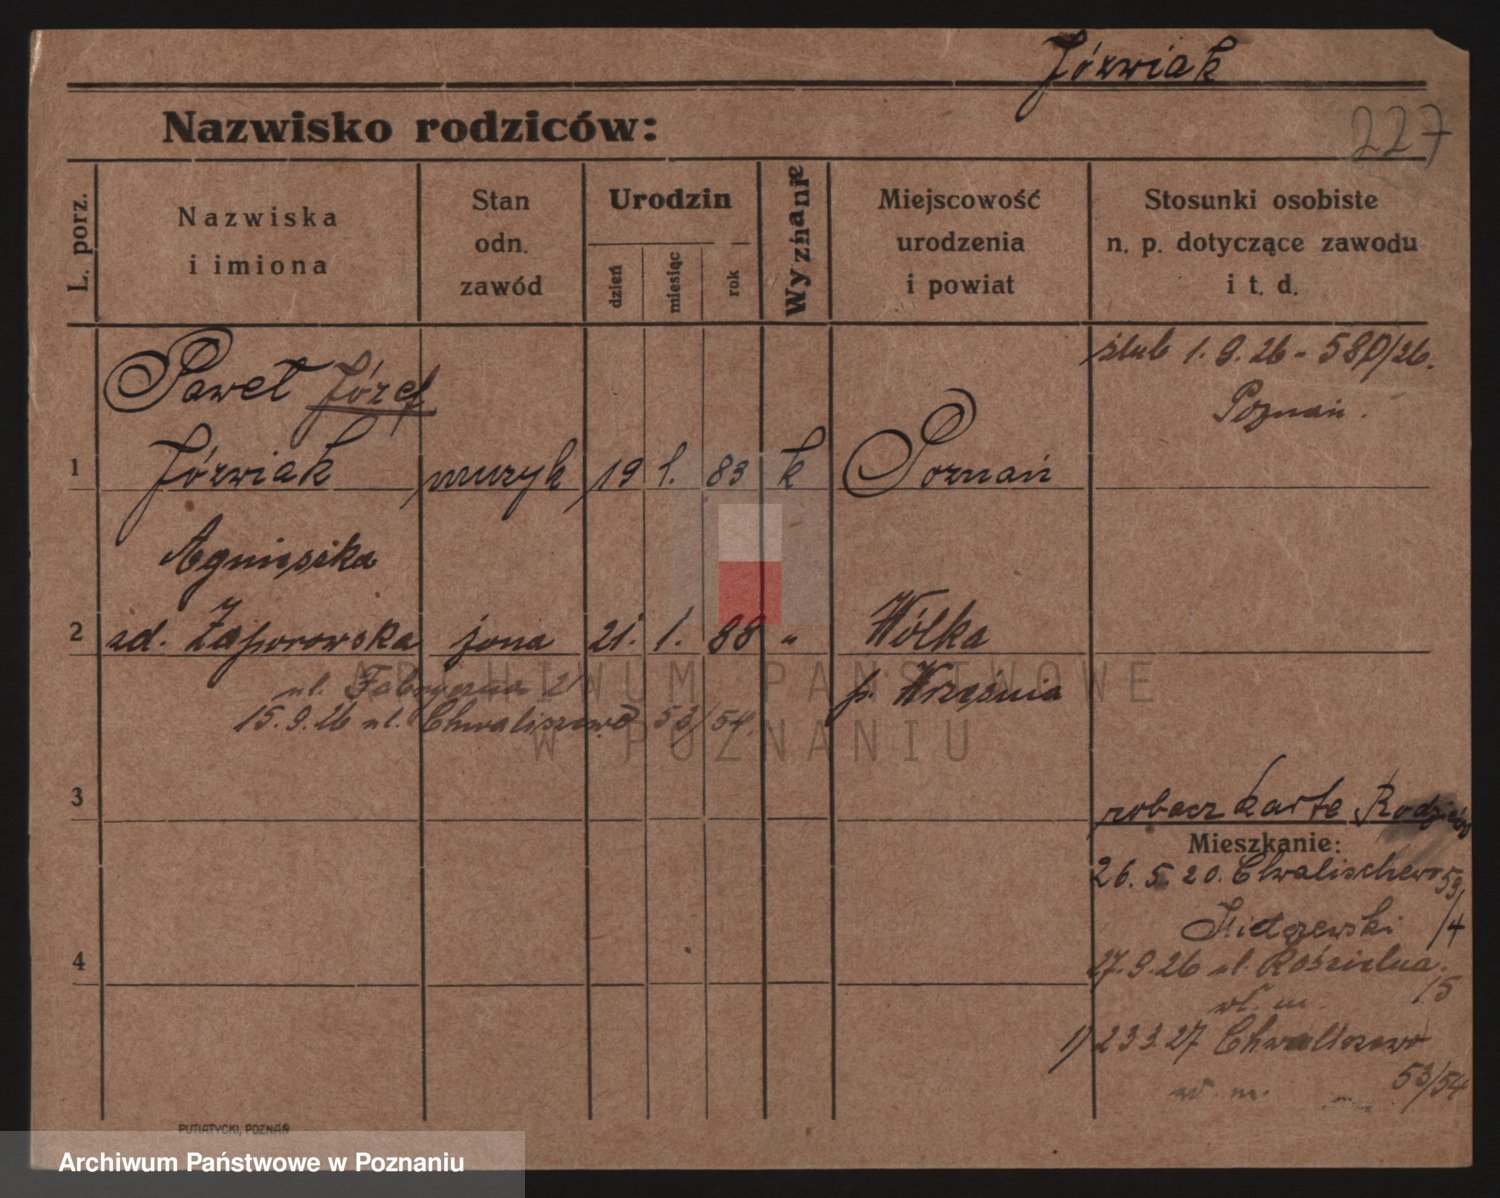 Józwiak
227
Nazwisko rodziców:
L. porz.
Nazwiska
i imiona
Stan
odn.
zawód
Urodzin
dzień
miesiąc
rok
Wyznanie
Miejscowość
urodzenia
i powiat
Stosunki osobiste
n. p. dotyczące zawodu
i t. d.
ślub 1. 9. 26 - 580/26.
Poznań.
Paweł Józef
1 Józwiak muzyk 19 1. 83 k Poznań
Agnieszka
2 zd. Zaporowska żona 21. 1. 88 " Wólka
p. Września
ul. Fabryczna 21
15.9.26 ul. Chwaliszewo 53/54.
3
zobacz kartę Rodziców
Mieszkanie:
26. 5. 20. Chwalischewo 53/
/4
4
27.9.26 ul. Kościelna.
/5
wł. m.
1) 23 3. 27 Chwaliszewo
53/54
wł. m.
PUTIATYCKI, POZNAŃ
ARCHIWUM PAŃSTWOWE
W POZNANIU
Archiwum Państwowe w Poznaniu